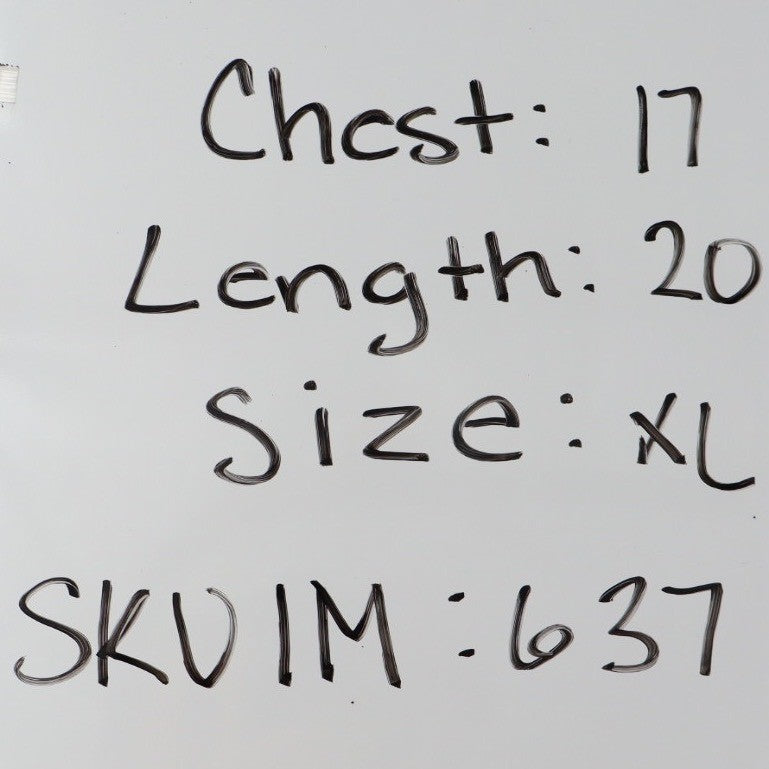 Chest: 17
Length: 20
Size: XL
SKUIM: 637